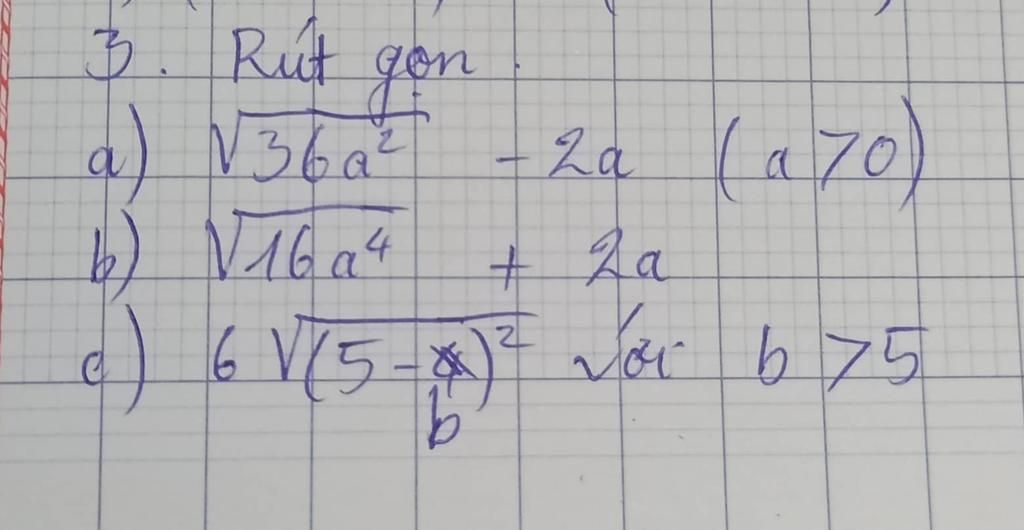 3. Rút gọn.
a) √36a² - 2a (a > 0)
b) √16a⁴ + 2a
c) 6√(5 - b)² Với b > 5